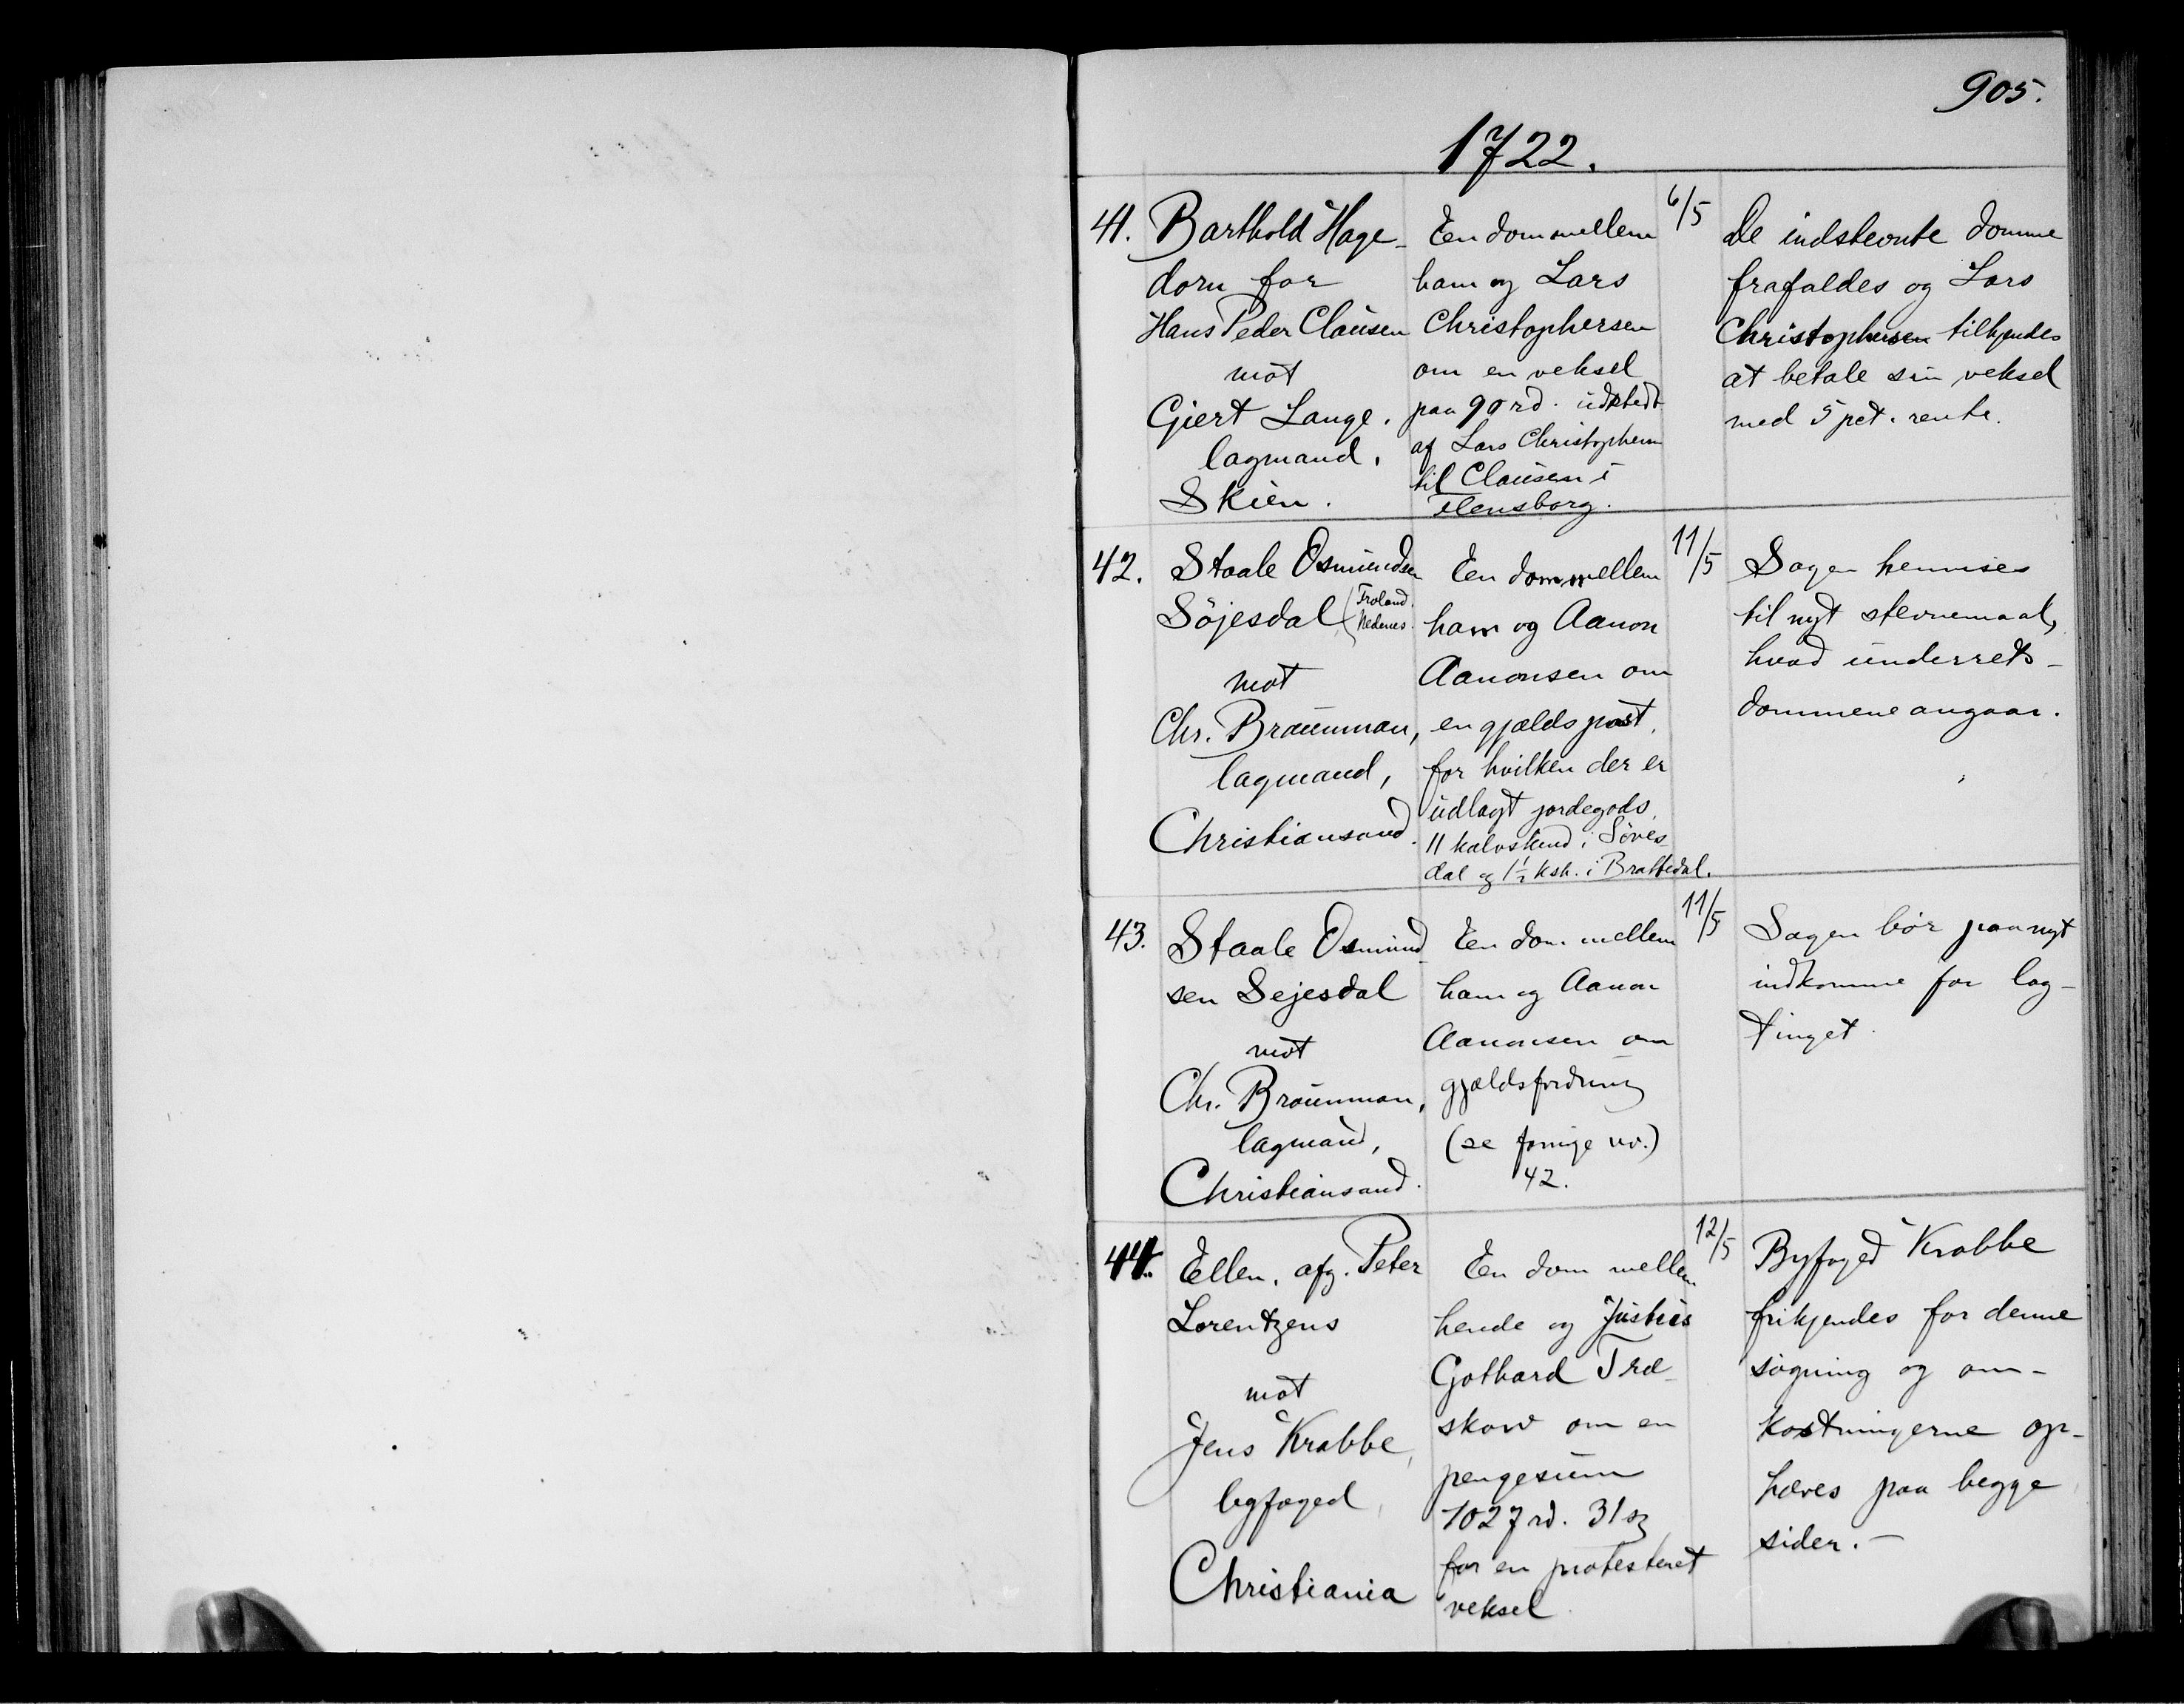 905.
1722.
41. Barthold Hage-
dorn for
Hans Peder Clausen
mot
Giert Lange,
lagmand,
Skien.
En dom mellem
ham og Lars
Christophersen
om en veksel
paa 90 rd. udstedt
af Lars Christophersen
til Clausen i
Flensborg.
6/5
De indstevnte domme
frafaldes og Lars
Christophersen tilkjendes
at betale sin veksel
med 5 pct. rente.
42. Staale Osmundsen
Söjesdal (Froland
Nedenes
mot
Chr. Braunman,
lagmand,
Christiansand.
En dom mellem
ham og Aanon
Aanonsen om
en gjældspost,
for hvilken der er
udlagt jordegods,
11 kalvskind i Söves-
dal og 1½ ksk. i Brattedal.
11/5
Sagen henvises
til nyt stevnemaal,
hvad underrets-
dommene angaar.
43. Staale Osmund-
sen Sejesdal
mot
Chr. Braunman,
lagmand,
Christiansand.
En dom mellem
ham og Aanon
Aanonsen om
gjældsfordring
(se forrige nr.)
42.
11/5
Sagen bör paa nyt
indkomme for lag-
tinget.
44. Ellen, afg. Peter
Lorentzens
mot
Jens Krabbe,
byfoged,
Christiania
En dom mellem
hende og Justus
Gothard Træ-
skow om en
pengesum
1027 rd. 31 sz
for en protesteret
veksel.
12/5
Byfoged Krabbe
frikjendes for denne
sögning og om-
kostningerne op-
hæves paa begge
sider.-